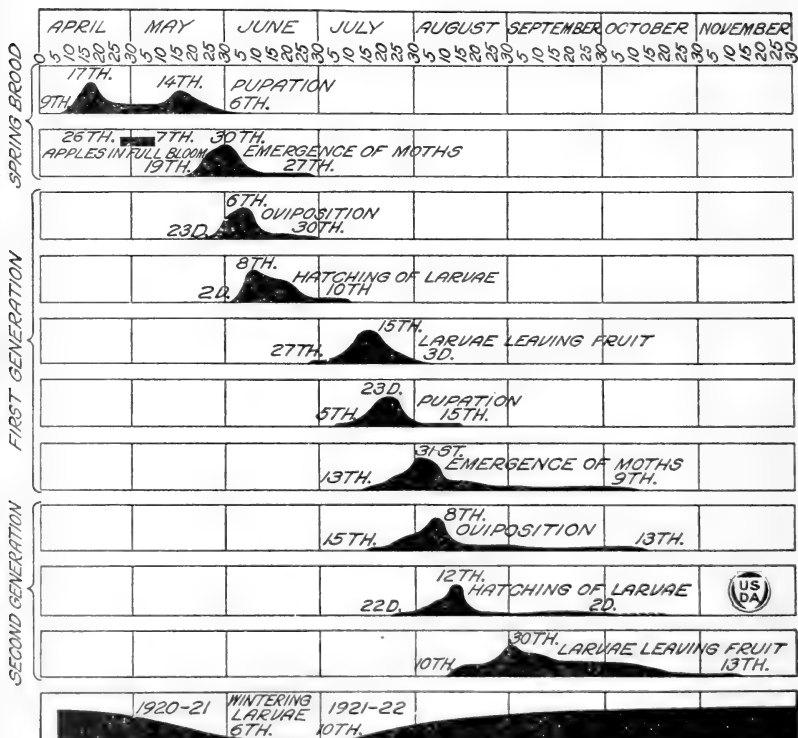 APRIL MAY JUNE JULY AUGUST SEPTEMBER OCTOBER NOVEMBER
0 5 10 15 20 25 30 5 10 15 20 25 30 5 10 15 20 25 30 5 10 15 20 25 30 5 10 15 20 25 30 5 10 15 20 25 30 5 10 15 20 25 30 5 10 15 20 25 30
SPRING BROOD
17TH. 14TH. PUPATION
9TH. 6TH.
26TH. 7TH. 30TH.
APPLES IN FULL BLOOM EMERGENCE OF MOTHS
19TH. 27TH.
FIRST GENERATION
6TH.
OVIPOSITION
23D. 30TH.
8TH.
HATCHING OF LARVAE
2D. 10TH
15TH.
LARVAE LEAVING FRUIT
27TH. 3D.
23D.
PUPATION
5TH. 15TH.
31ST.
EMERGENCE OF MOTHS
13TH. 9TH.
SECOND GENERATION
8TH.
OVIPOSITION
15TH. 13TH.
12TH.
HATCHING OF LARVAE
22D. 2D.
US
DA
30TH.
LARVAE LEAVING FRUIT
10TH. 13TH.
1920-21 WINTERING LARVAE 1921-22
6TH. 10TH.